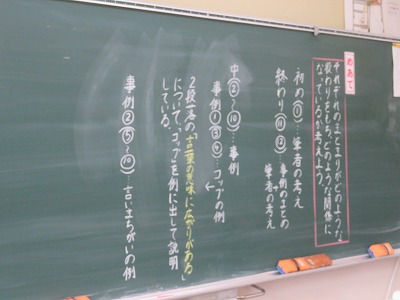 めあて
それぞれのまとまりがどのような
役わりをもち、どのような関係に
なっているか考えよう。
初め(①)…筆者の考え
終わり(⑪⑫)…事例のまとめ
筆者の考え
中(②〜⑩)…事例
事例①(③④)…コップの例
2段落の「言葉の意味に広がりがある」
について、「コップ」を例に出して説明
している。
事例②(⑤〜⑩)…言いまちがいの例